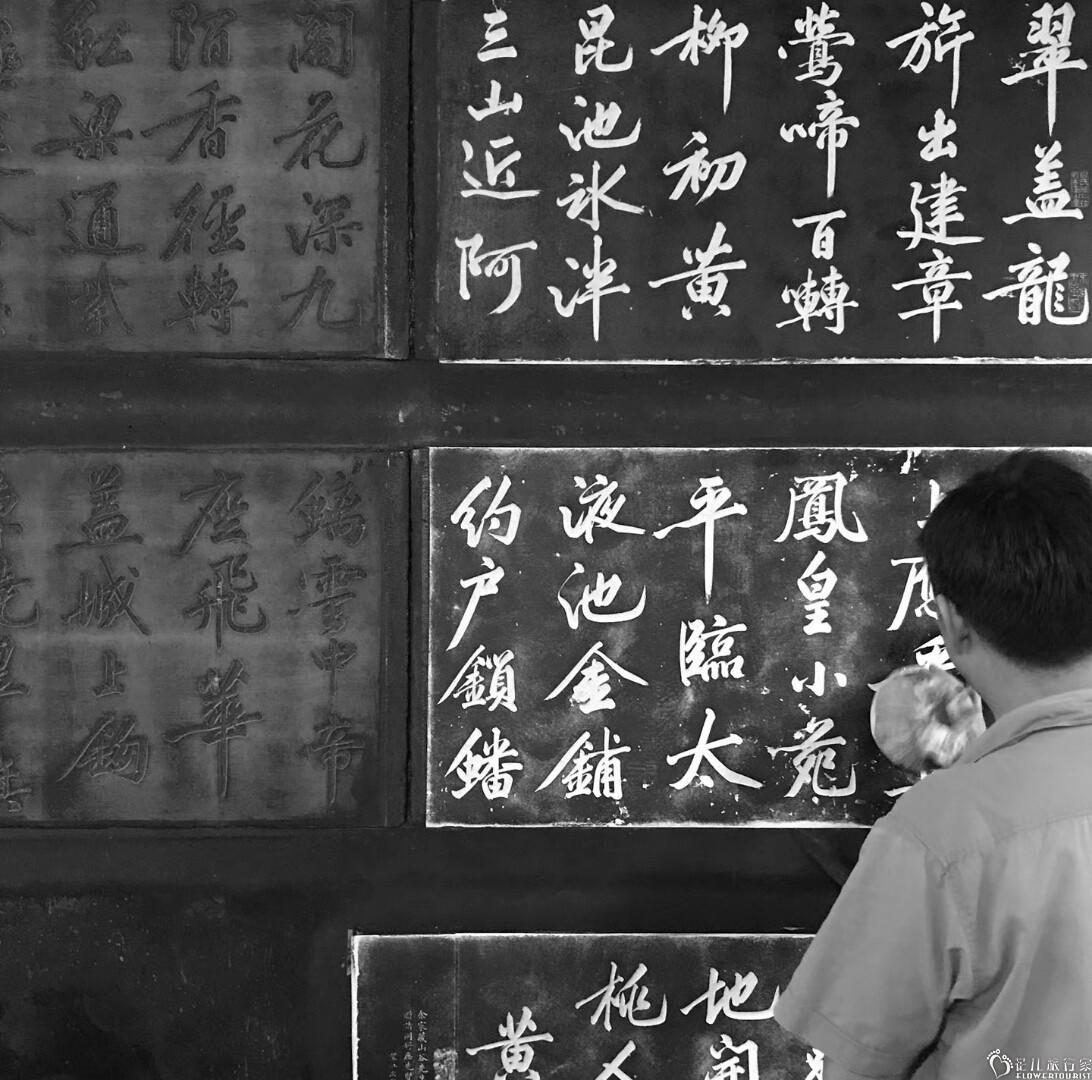 翠盖龍
旂出建章
鶯啼百囀
柳初黄
昆池氷泮
三山近阿
閣花深九
陌香徑轉
虹梁通紫
鳳皇小苑
平臨太
液池金鋪
約户鎖蟠
螭雲中帝
座飛華
盖城上鈎
地開
桃
黄
花儿旅行家
FLOWERTOURIST